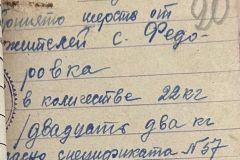 20
принято шерсть от
жителей с. Федо-
ровка
в количестве 22 кг
/двадцать два кг
спецификата № 57